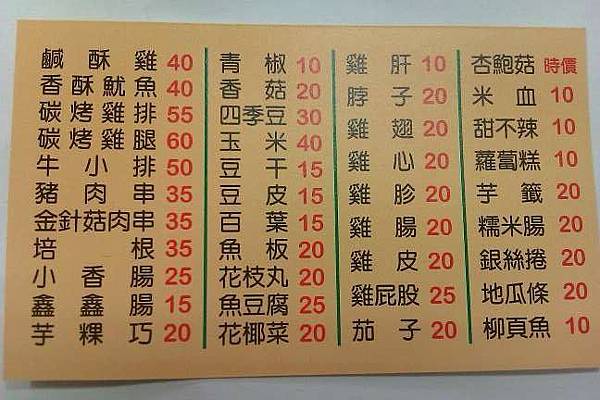 鹹酥雞 40
香酥魷魚 40
碳烤雞排 55
碳烤雞腿 60
牛小排 50
豬肉串 35
金針菇肉串 35
培根 35
小香腸 25
鑫鑫腸 15
芋粿巧 20
青椒 10
香菇 20
四季豆 30
玉米 40
豆干 15
豆皮 15
百葉 15
魚板 20
花枝丸 20
魚豆腐 25
花椰菜 20
雞肝 10
脖子 20
雞翅 20
雞心 20
雞胗 20
雞腸 20
雞皮 20
雞屁股 25
茄子 20
杏鮑菇 時價
米血 10
甜不辣 10
蘿蔔糕 10
芋籤 20
糯米腸 20
銀絲捲 20
地瓜條 20
柳頁魚 10